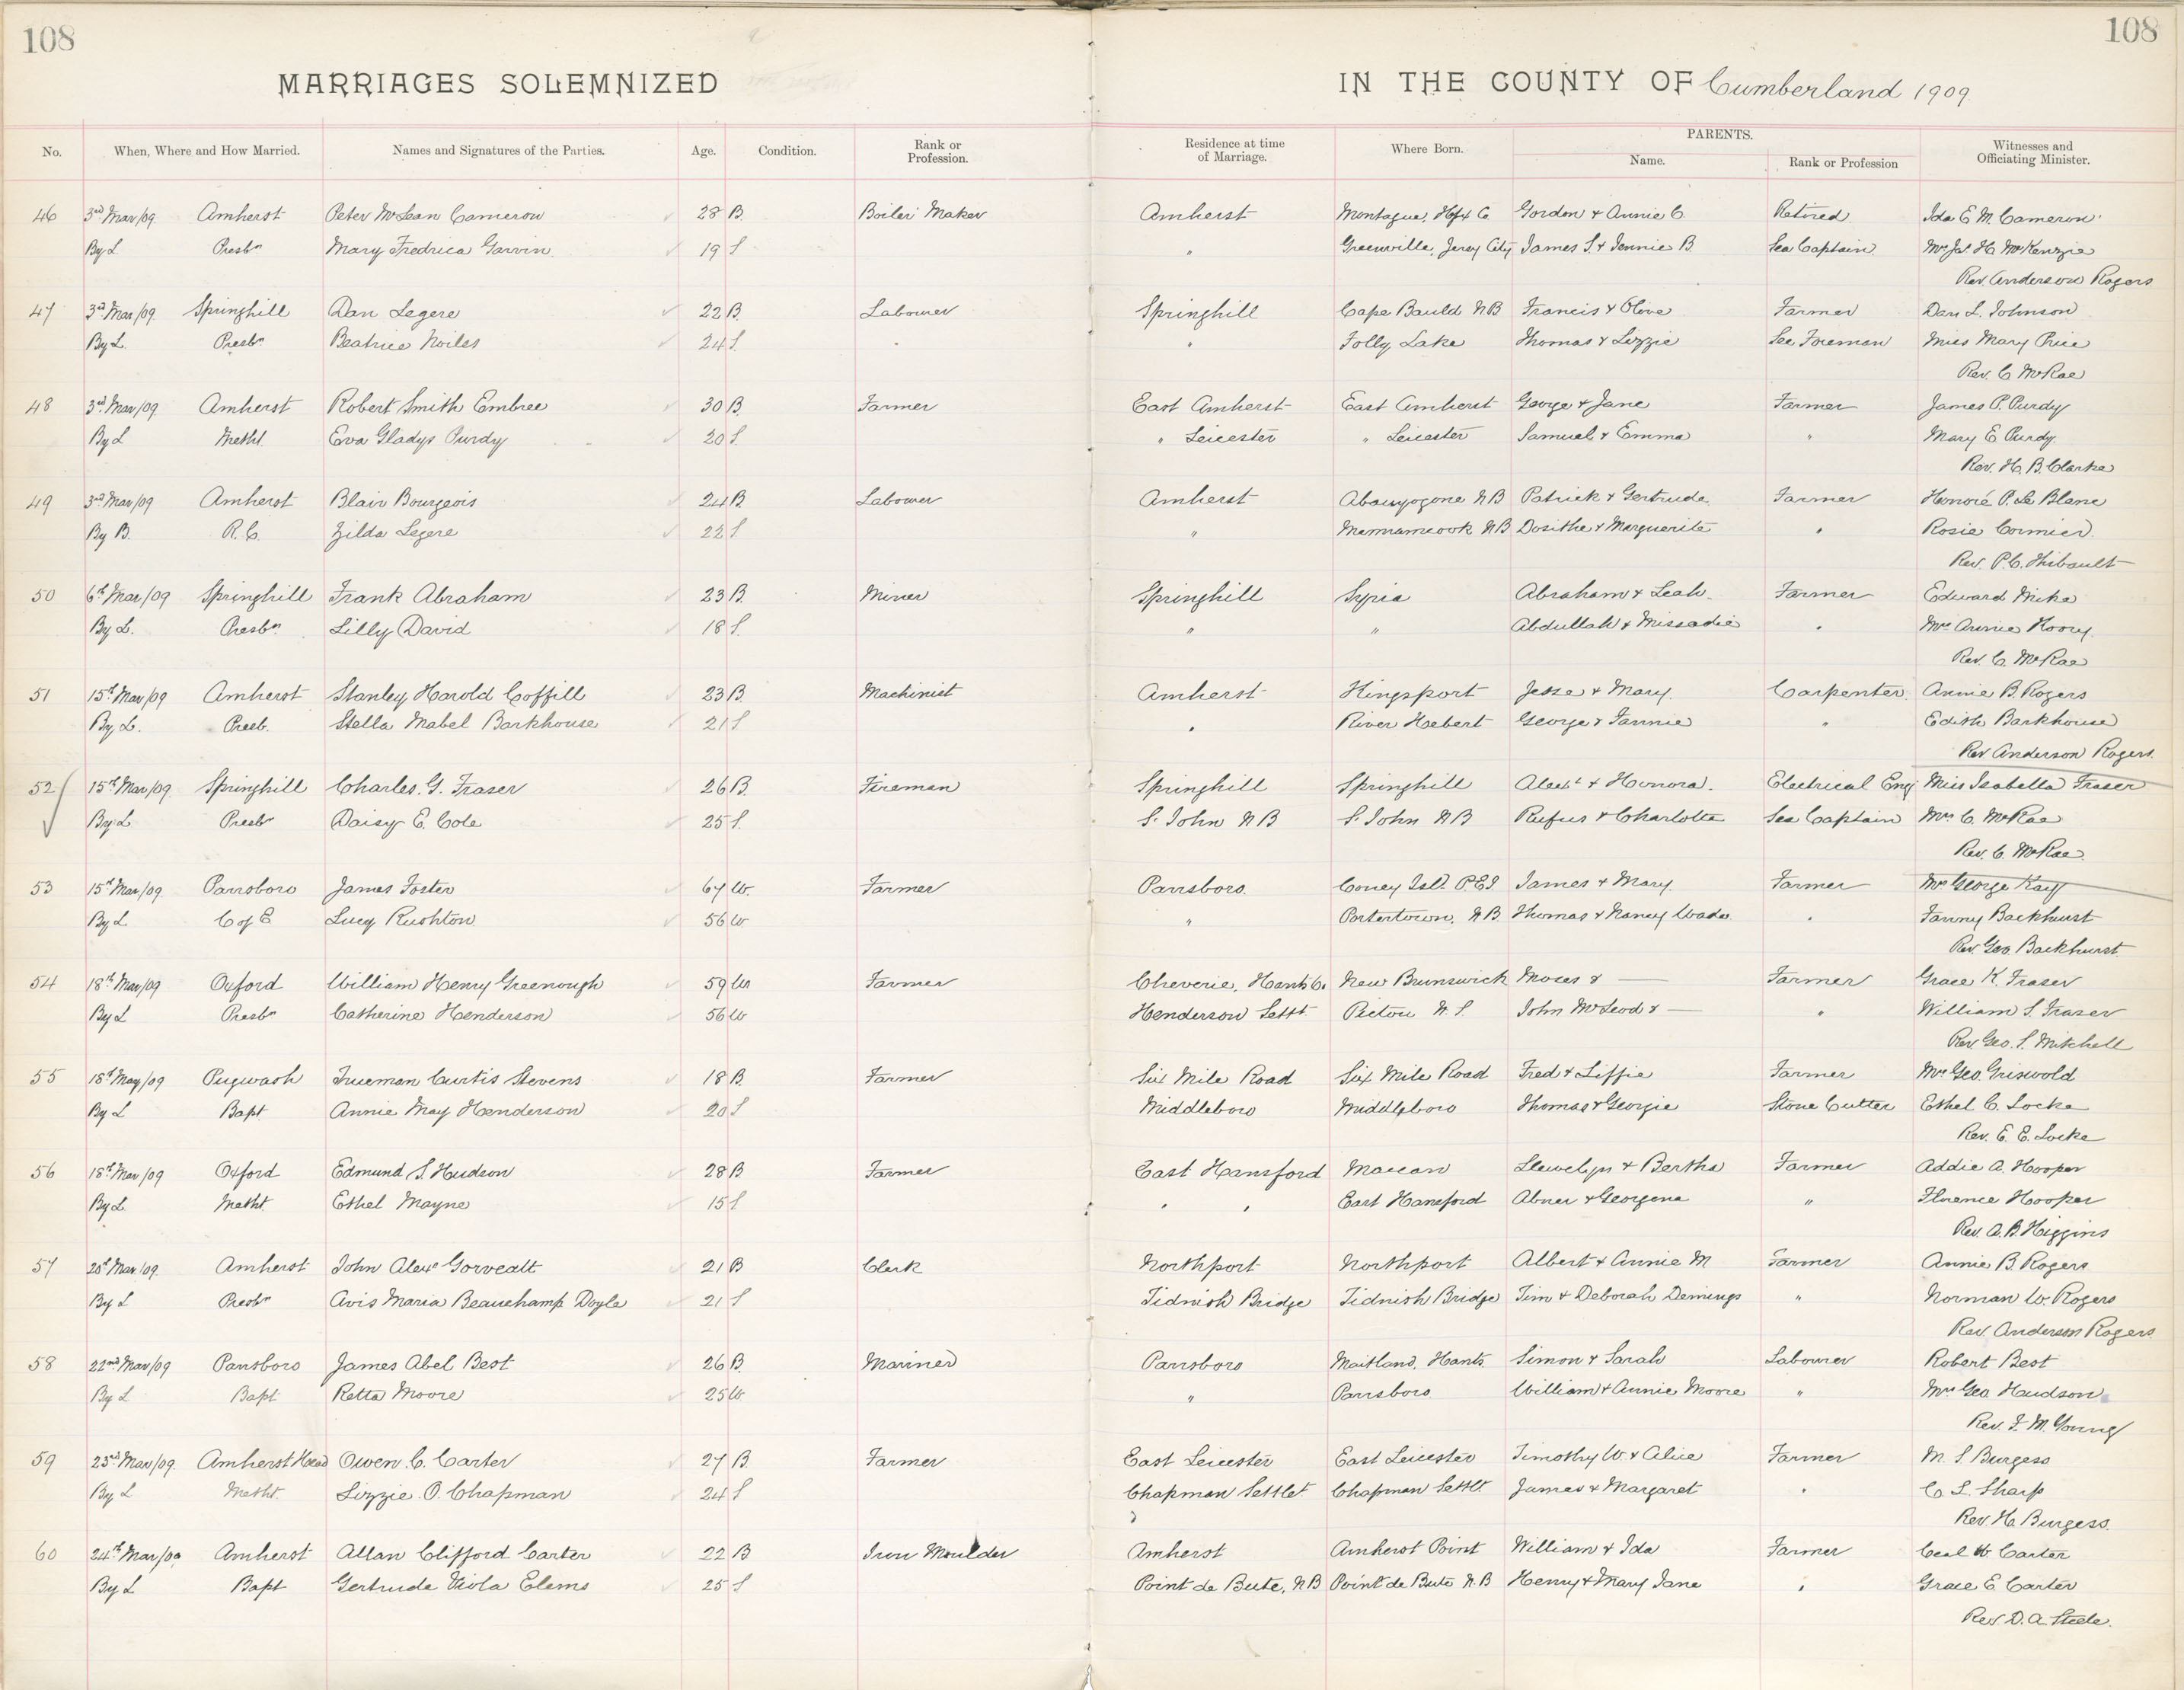 108
108
MARRIAGES SOLEMNIZED IN THE COUNTY OF Cumberland 1909
No. When, Where and How Married. Names and Signatures of the Parties. Age. Condition. Rank or Profession. Residence at time of Marriage. Where Born. PARENTS. Name. Rank or Profession Witnesses and Officiating Minister.
46 3rd Mar/09 Amherst Peter McLean Cameron 28 B. Boiler Maker Amherst Montague, Hfx Co Gordon & Annie C. Retired Ida E. M. Cameron
By L Presbn Mary Fredrica Garvin 19 S " Greenville, Jersey City James S. & Jennie B. Sea Captain Mrs Jas. H. McKenzie
Rev. Anderson Rogers
47 3rd Mar/09 Springhill Dan Legere 22 B. Labourer Springhill Cape Bauld NB Francis & Olive Farmer Dan L. Johnson
By L. Presbn Beatrice Noiles 24 S. " Folly Lake Thomas & Lizzie Sec Foreman Miss Mary Price
Rev. C. McRae
48 3rd Mar/09 Amherst Robert Smith Embree 30 B. Farmer East Amherst East Amherst George & Jane Farmer James P. Purdy
By L Metht. Eva Gladys Purdy 20 S. " Leicester " Leicester Samuel & Emma " Mary E Purdy.
Rev. H. B. Clarke
49 3rd Mar/09 Amherst Blair Bourgeois 24 B. Labourer Amherst NB Patrick & Gertrude. Farmer Honoré P. Le Blanc
By B. R. C. Zilda Legere 22 S. " Memramcook NB Dosithe & Marguerite " Rosie Cormier.
Rev. P. C. Thibault
50 6th Mar/09 Springhill Frank Abraham 23 B. Miner Springhill Syria Abraham & Leah. Farmer Edward Mike
By L. Presbn Lilly David 18 S. " " Abdullah & Missadie " Mrs Annie
Rev. C. McRae
51 15th Mar/09 Amherst Stanley Harold Coffill 23 B. Machinist Amherst Kingsport Jesse & Mary. Carpenter. Annie B. Rogers
By L. Presb. Stella Mabel Barkhouse 21 S " River Hebert George & Fannie " Edith Barkhouse
Rev Anderson Rogers
52 15th Mar/09 Springhill Charles. G. Fraser 26 B. Fireman Springhill Springhill Alexr & Honora. Electrical Eng Miss Isabella Fraser
By L Presbn Daisy E. Cole 25 S. S. John NB S. John NB Rufus & Charlotte Sea Captain Mrs C. McRae
Rev. C. McRae
53 15th Mar/09 Parrsboro James Foster 67 W. Farmer Parrsboro. Coney Isld. PEI James & Mary. Farmer Mrs George Kay
By L C of E Lucy Rushton 56 W " Portertown, NB Thomas & Nancy Wade " Fanny Backhurst
Rev Geo. Backhurst
54 18th Mar/09 Oxford William Henry Greenough 59 Wr Farmer Cheverie, Hants Co. New Brunswick Moses & — Farmer Grace K. Fraser
By L Presbn Catherine Henderson 56 W Henderson Settt. Pictou N. S. John McLeod & — " William S. Fraser
Rev Geo. S. Mitchell
55 18th May/09 Pugwash Trueman Curtis Stevens 18 B. Farmer Six Mile Road Six Mile Road Fred & Liffie Farmer Mrs Geo. Griswold
By L Bapt. Annie May Henderson 20 S Middleboro Middleboro Thomas & Georgie Stone Cutter Ethel C. Locke
Rev. E. E. Locke
56 18th Mar/09 Oxford Edmund S. Hudson 28 B. Farmer East Hansford Maccan Llewelyn & Bertha Farmer Addie A. Hooper
By L. Metht. Ethel Mayne 15 S " " East Hansford Abner & Georgena " Florence Hooper
Rev. A. B. Higgins
57 20th Mar/09. Amherst John Alexr Gorvealt 21 B Clerk Northport Northport Albert & Annie M Farmer Annie B. Rogers
By L Presbn Avis Maria Beauchamp Doyle 21 S Tidnish Bridge Tidnish Bridge Tim & Deborah Demings " Norman W. Rogers
Rev. Anderson Rogers
58 22nd Mar/09 Parrsboro James Abel Best 26 B. Mariner Parrsboro Maitland, Hants Simon & Sarah Labourer Robert Best
By L Bapt Retta Moore 25 W. " Parrsboro William & Annie Moore " Mrs Geo. Hudson
Rev. F. M. Young
59 23rd Mar/09. Amherst Head Owen. C. Carter 27 B. Farmer East Leicester East Leicester Timothy W. & Alice Farmer M. S. Burgess
By L Metht. Lizzie. O. Chapman 24 S Chapman Settlet Chapman Settlt. James & Margaret " C. L. Sharp
Rev. H. Burgess.
60 24th Mar/09 Amherst Allan Clifford Carter 22 B Iron Moulder Amherst Amherst Point William & Ida Farmer Ceal W. Carter
By L Bapt Gertrude Viola Elems 25 S Point de Bute, NB Point de Bute N.B Henry & Mary Jane " Grace E. Carter
Rev. D. A. Steele.